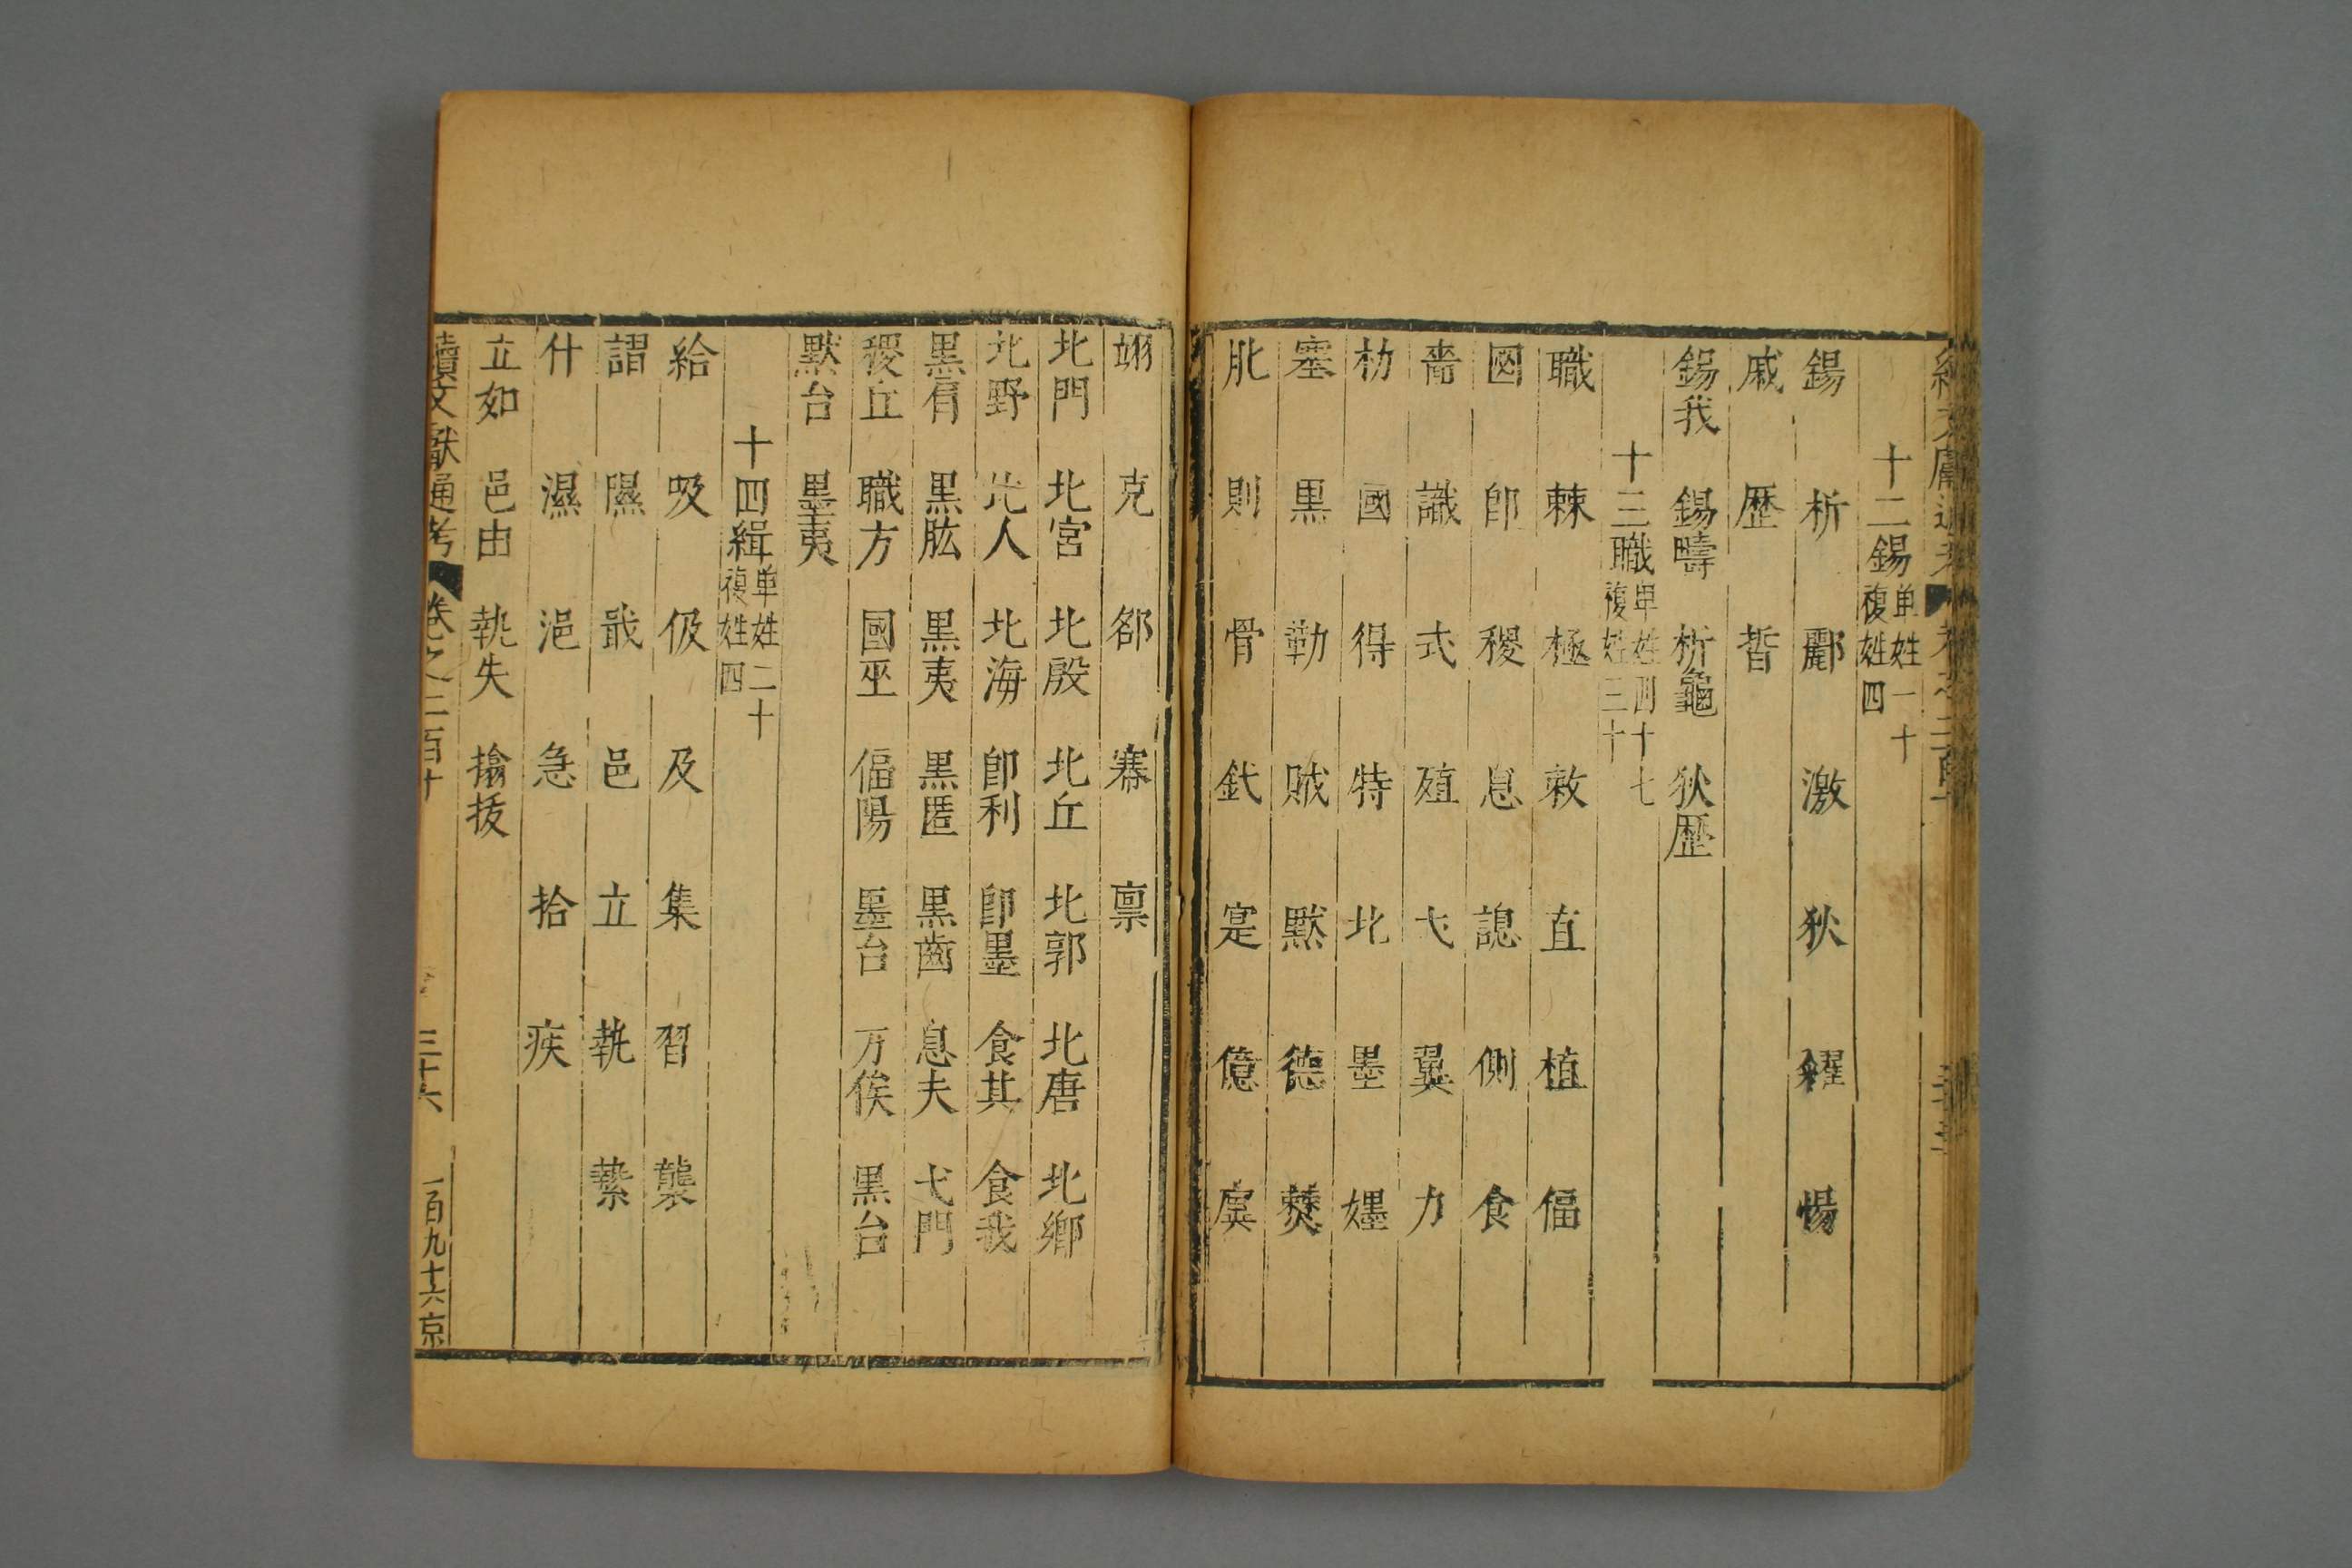 十二錫 单姓一十 複姓四
錫 析 酈 激 狄 糴 惕
戚 歷 晳
錫我 錫疇 析龜 狄歷
十三職 单姓四十七 複姓三十
職 棘 極 敕 直 植 偪
國 卽 稷 息 諰 側 食
嗇 識 式 殖 弋 翼 力
朸 國 得 特 北 墨 嫼
塞 黒 勒 賊 黙 德 僰
則 骨 釴 寔 億 廙
翊 克 郤 寨 禀
北門 北宮 北殷 北丘 北郭 北唐 北鄉
北野 北人 北海 卽利 卽墨 食其 食我
黒肩 黒肱 黒夷 黒匿 黒齒 息夫 弋門
稷丘 職方 國巫 偪陽 墨台 万俟 黒台
默台 墨夷
十四緝 单姓二十 複姓四
給 吸 伋 及 集 習 襲
謵 隰 戢 邑 立 執 縶
什 濕 浥 急 拾 疾
立如 邑由 執失 揄拔
續文獻通考 卷之二百十 三十六 一百九十六京